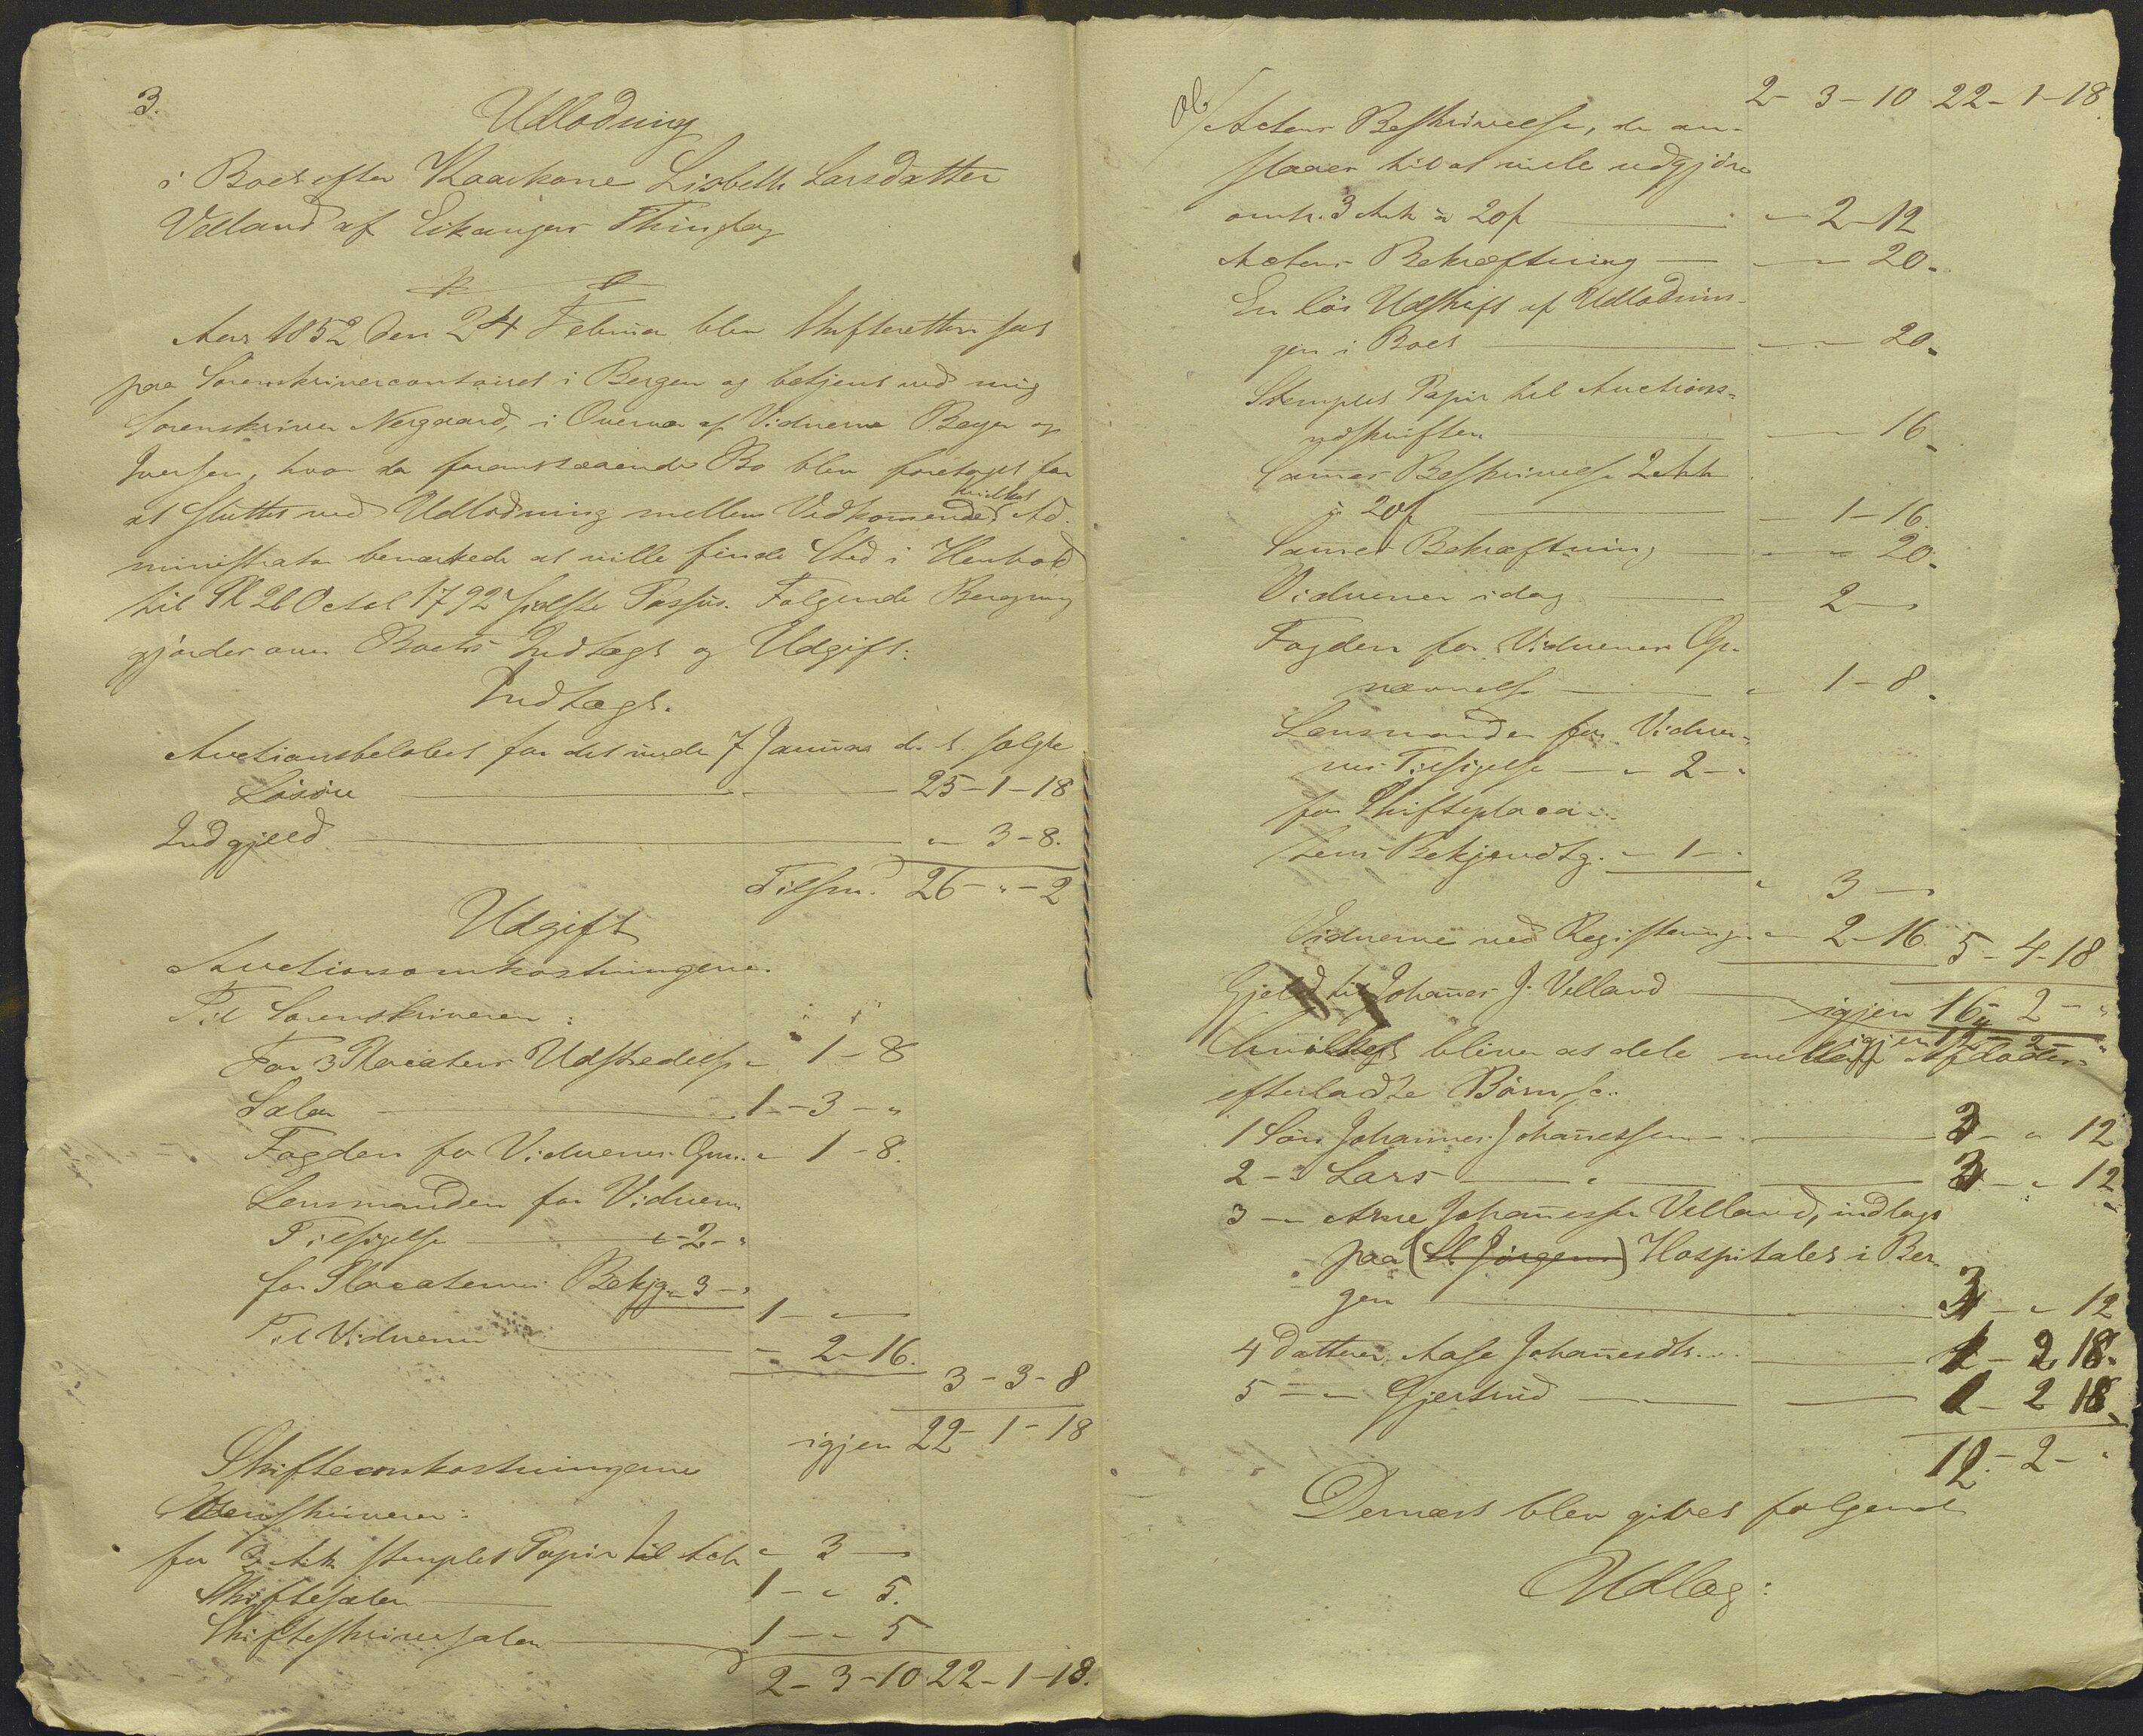 3.
Udlodning
i Boet efter Kaarkone Lisbeth Larsdatter
Velland af Eikanger Thinglag
Aar 1852 den 24 Februar blev Skifteretten sat
paa Sorenskrivercontoiret i Bergen og betjent ved mig
Sorenskriver Nergaard, i Overvær af Vidnerne Beyer og
Iversen, hvor da foranstaaende Bo blev foretaget for
at sluttes ved Udlodning mellem Vedkommende, hvilket Ad-
ministrator bemærkede at ville finde Sted i Henhold
til Pl 26 Octob 1792 sidste Passus. Følgende Beregning
gjordes over Boets Indtægt og Udgift:
Indtægt.
Auctionsbeløbet for det under 7 Januar d. A. solgte
Løsøre 25-1-18
Indgjeld " 3-8.
Tilsm. 26-"-2
Udgift
Auctionsomkostningerne.
Til Sorenskriveren:
For 3 Placaters Udstedelse " 1-8
Salær 1-3-"
Fogden for Vidnernes Opn. " 1-8.
Lensmanden for Vidnern
Tilsigelse "-2-"
for Placaternes Bekjg. " 3-"
1-"-
Til Vidnerne - 2-16.
3-3-8
igjen 22-1-18
Skifteomkostningerne
Sorenskriveren:
for 2 Ark stemplet Papir til Act " 3-
Skiftesalær 1-" 5.
Skifteskriversalær 1-" 5
2-3-10 22-1-18.
2-3-10 22-1-18
Actens Beskrivelse, da an-
slaaes til at ville udgjøre
omtr. 3 Ark a 20 s - 2-12
Actens Bekræftning - 20.
En løs Udskrift af Udlodnin-
gen i Boet - 20.
Stemplet Papir til Auctions-
udskriften - 16.
Sammes Beskrivelse 2 Ark
a 20 s - 1-16.
Sammes Bekræftning - " 20.
Vidnerne idag 2-"
Fogden for Vidnernes Op-
nævnelse " 1-8.
Lensmanden for Vidner-
nes Tilsigelse - " 2-"
for Skifteplaca-
tens Bekjendtg. - 1-"
" 3-"
Vidnerne ved Registeringen - 2-16 5-4-18
Gjeld til Johannes J. Velland igjen 16-2-"
4
igjen 12 2-"
hvilket bliver at dele mellem Afdødes
efterladte Børn, sc.
1 Søn Johannes Johannessen 3-" 12
2 -" Lars " 3-" 12
3 -" Arne Johannessen Velland, indlagt
paa (St. Jørgens) Hospitalet i Ber-
gen 3-" 12
4 Datteren Aase Johannesdtr. 1-2 18.
5 -" Gjertrud 1-2 18
12-2-"
Dernæst blev givet følgende
Udlæg: